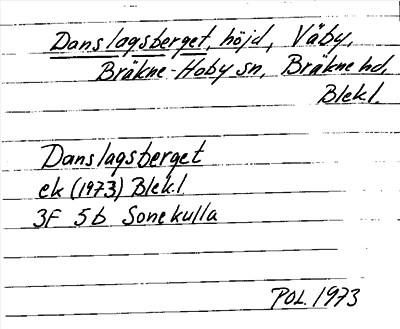 Danslagsberget, höjd, Väby,
Bräkne-Hoby sn, Bräkne hd,
Blekl.
Danslagsberget
ek (1973) Blekl.
3F 5b Sonekulla
POL. 1973